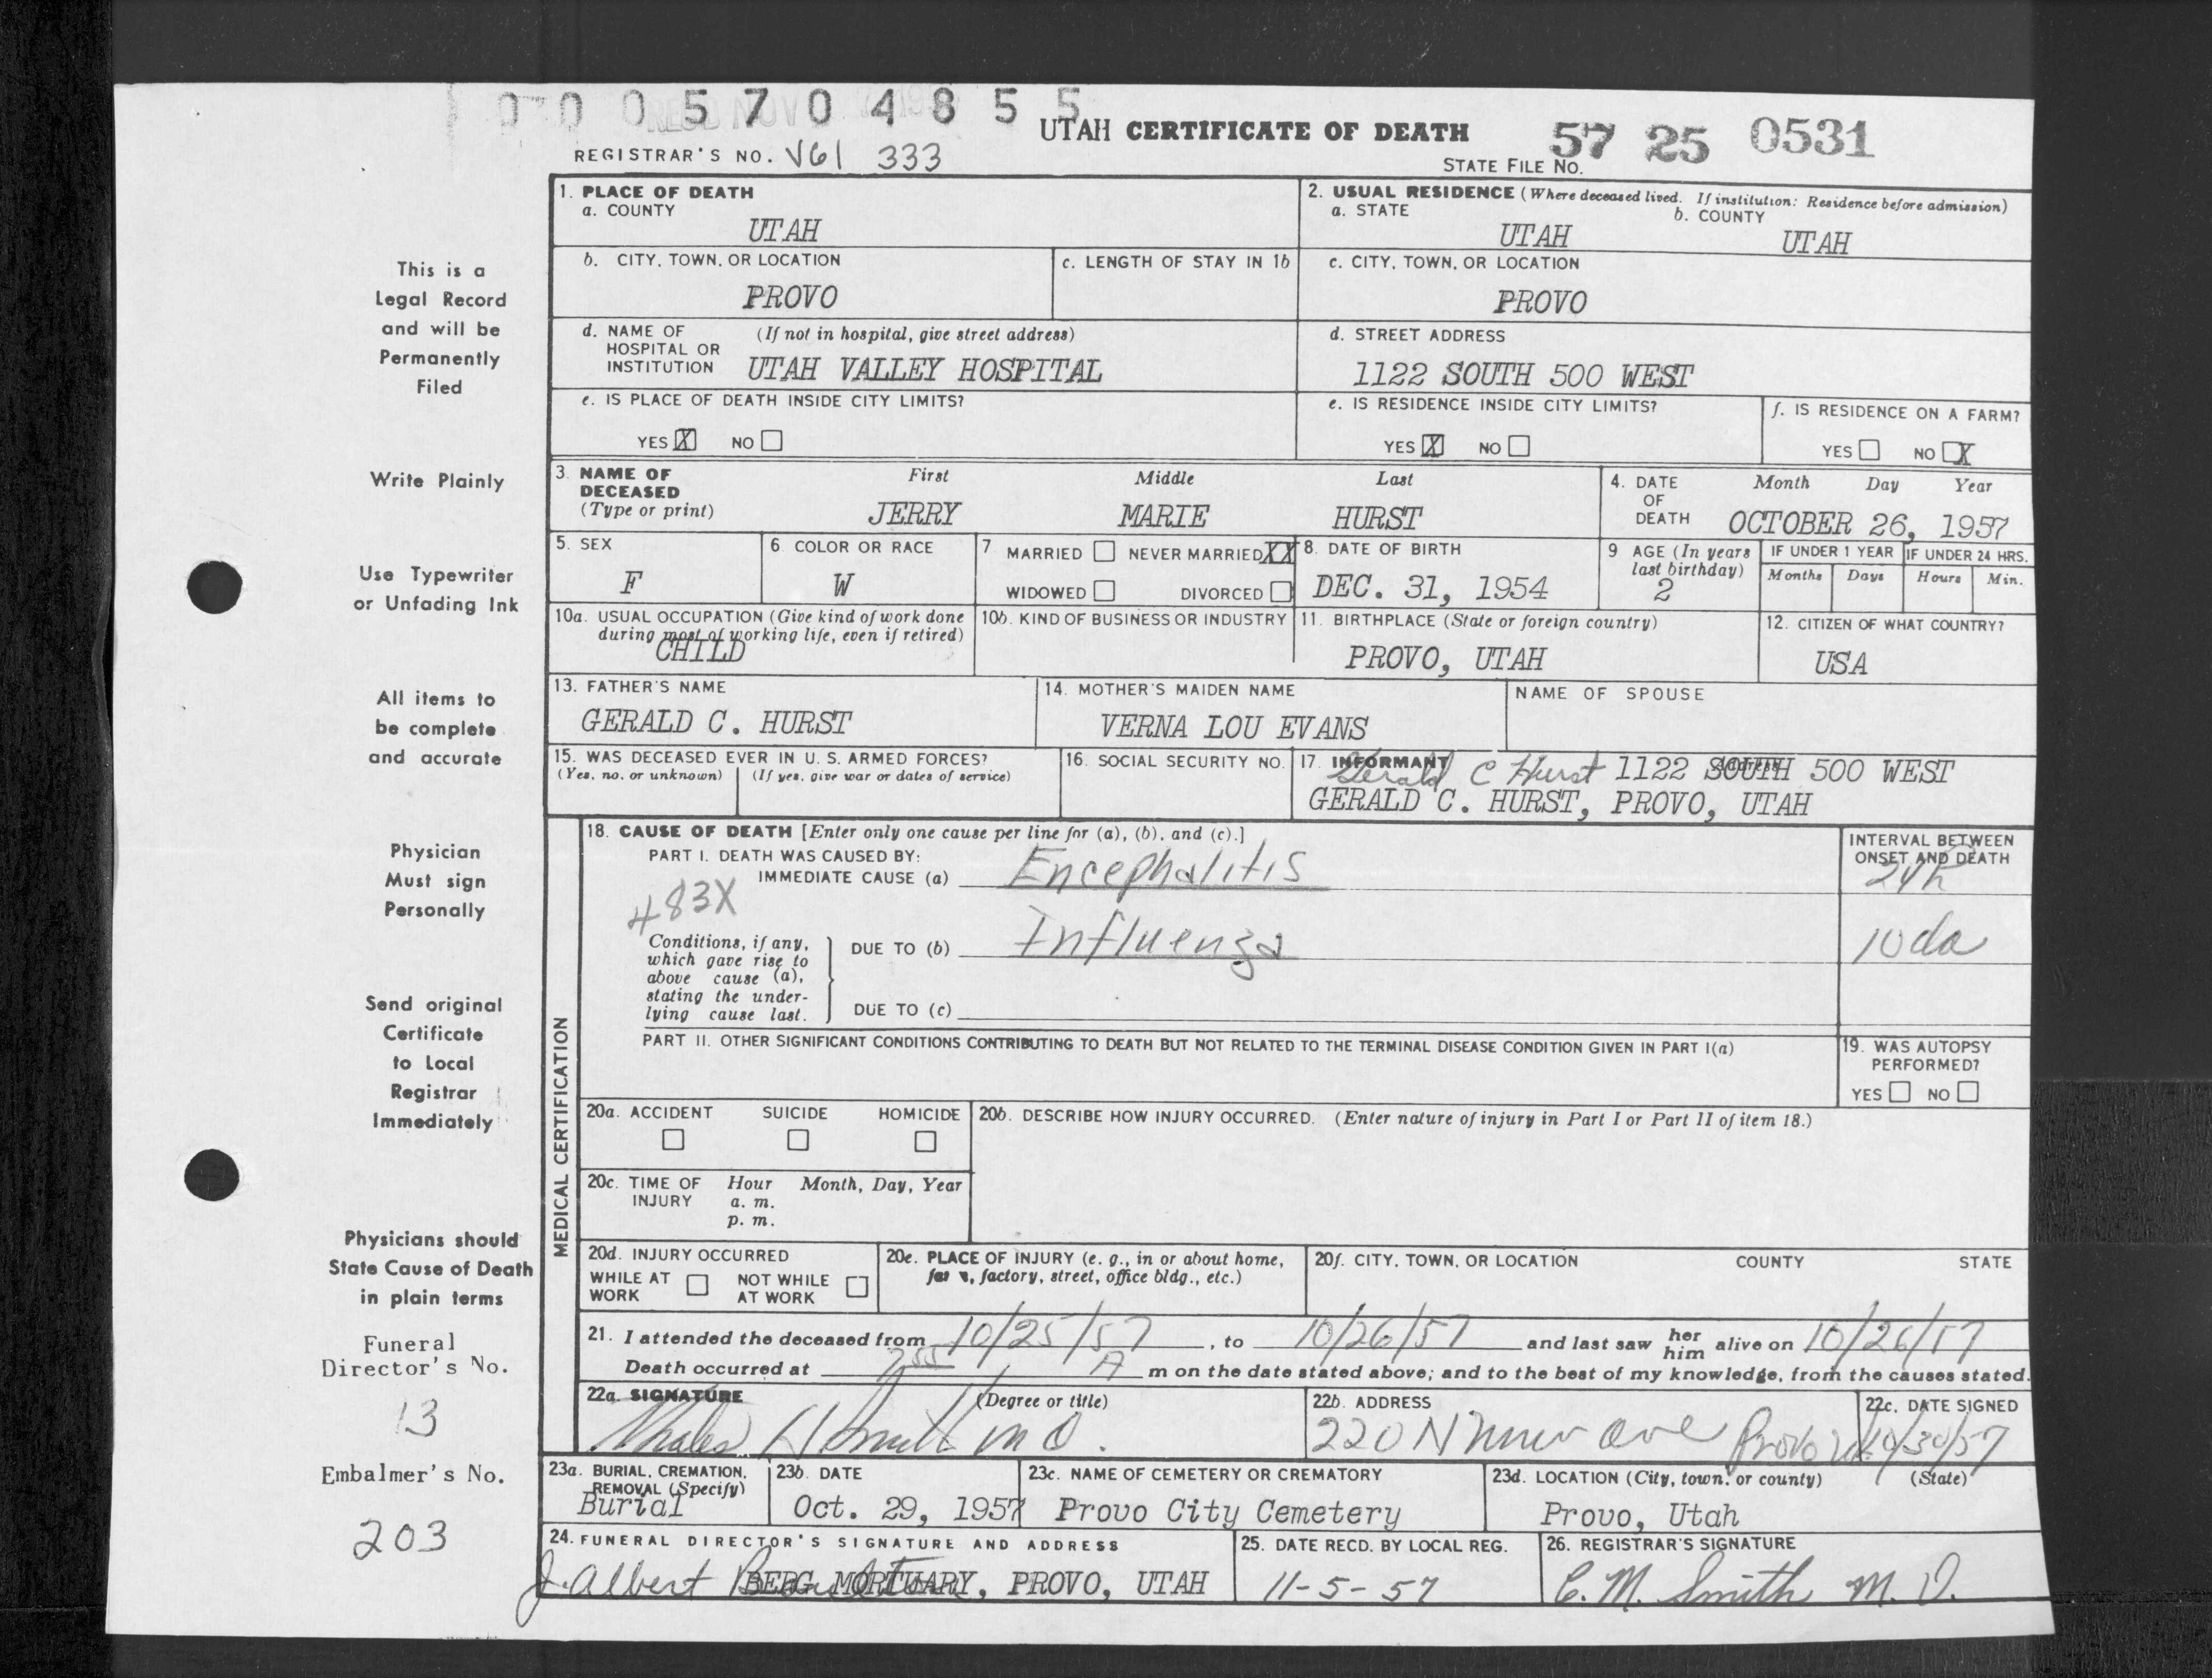 0005704855
UTAH CERTIFICATE OF DEATH
57 25 0531
REGISTRAR'S NO. V61 333
STATE FILE NO.
This is a
Legal Record
and will be
Permanently
Filed
Write Plainly
Use Typewriter
or Unfading Ink
All items to
be complete
and accurate
Physician
Must sign
Personally
Send original
Certificate
to Local
Registrar
Immediately
Physicians should
State Cause of Death
in plain terms
Funeral
Director's No.
13
Embalmer's No.
203
1. PLACE OF DEATH
a. COUNTY
UTAH
2. USUAL RESIDENCE (Where deceased lived. If institution: Residence before admission)
a. STATE
UTAH
b. COUNTY
UTAH
b. CITY, TOWN, OR LOCATION
PROVO
c. LENGTH OF STAY IN 1b
c. CITY, TOWN, OR LOCATION
PROVO
d. NAME OF HOSPITAL OR INSTITUTION
(If not in hospital, give street address)
UTAH VALLEY HOSPITAL
d. STREET ADDRESS
1122 SOUTH 500 WEST
e. IS PLACE OF DEATH INSIDE CITY LIMITS?
YES X NO
e. IS RESIDENCE INSIDE CITY LIMITS?
YES X NO
f. IS RESIDENCE ON A FARM?
YES NO X
3. NAME OF DECEASED (Type or print)
First Middle Last
JERRY MARIE HURST
4. DATE OF DEATH
Month Day Year
OCTOBER 26, 1957
5. SEX
F
6. COLOR OR RACE
W
7. MARRIED NEVER MARRIED XX
WIDOWED DIVORCED
8. DATE OF BIRTH
DEC. 31, 1954
9 AGE (In years last birthday)
2
IF UNDER 1 YEAR
Months Days
IF UNDER 24 HRS.
Hours Min.
10a. USUAL OCCUPATION (Give kind of work done
during most of working life, even if retired)
CHILD
10b. KIND OF BUSINESS OR INDUSTRY
11. BIRTHPLACE (State or foreign country)
PROVO, UTAH
12. CITIZEN OF WHAT COUNTRY?
USA
13. FATHER'S NAME
GERALD C. HURST
14. MOTHER'S MAIDEN NAME
VERNA LOU EVANS
NAME OF SPOUSE
15. WAS DECEASED EVER IN U. S. ARMED FORCES?
(Yes, no, or unknown) (If yes, give war or dates of service)
16. SOCIAL SECURITY NO.
17. INFORMANT Address
Gerald C Hurst 1122 SOUTH 500 WEST
GERALD C. HURST, PROVO, UTAH
MEDICAL CERTIFICATION
18. CAUSE OF DEATH [Enter only one cause per line for (a), (b), and (c).]
PART I. DEATH WAS CAUSED BY:
IMMEDIATE CAUSE (a) Encephalitis
INTERVAL BETWEEN
ONSET AND DEATH
483X
Conditions, if any,
which gave rise to
above cause (a),
stating the under-
lying cause last.
DUE TO (b) Influenza
10 da
DUE TO (c)
PART II. OTHER SIGNIFICANT CONDITIONS CONTRIBUTING TO DEATH BUT NOT RELATED TO THE TERMINAL DISEASE CONDITION GIVEN IN PART I(a)
19. WAS AUTOPSY
PERFORMED?
YES NO
20a. ACCIDENT SUICIDE HOMICIDE
20b. DESCRIBE HOW INJURY OCCURRED. (Enter nature of injury in Part I or Part II of item 18.)
20c. TIME OF INJURY
Hour Month, Day, Year
a. m.
p. m.
20d. INJURY OCCURRED
WHILE AT WORK NOT WHILE AT WORK
20e. PLACE OF INJURY (e. g., in or about home,
factory, street, office bldg., etc.)
20f. CITY, TOWN, OR LOCATION COUNTY STATE
21. I attended the deceased from 10/25/57, to 10/26/57 and last saw her him alive on 10/26/57
Death occurred at 7 55 A m on the date stated above; and to the best of my knowledge, from the causes stated.
22a. SIGNATURE (Degree or title)
H Smith MD.
22b. ADDRESS
220 N Ave Provo
22c. DATE SIGNED
10/30/57
23a. BURIAL, CREMATION,
REMOVAL (Specify)
Burial
23b. DATE
Oct. 29, 1957
23c. NAME OF CEMETERY OR CREMATORY
Provo City Cemetery
23d. LOCATION (City, town, or county) (State)
Provo, Utah
24. FUNERAL DIRECTOR'S SIGNATURE AND ADDRESS
J. Albert BERG MORTUARY, PROVO, UTAH
25. DATE RECD. BY LOCAL REG.
11-5-57
26. REGISTRAR'S SIGNATURE
C. M. Smith M. D.